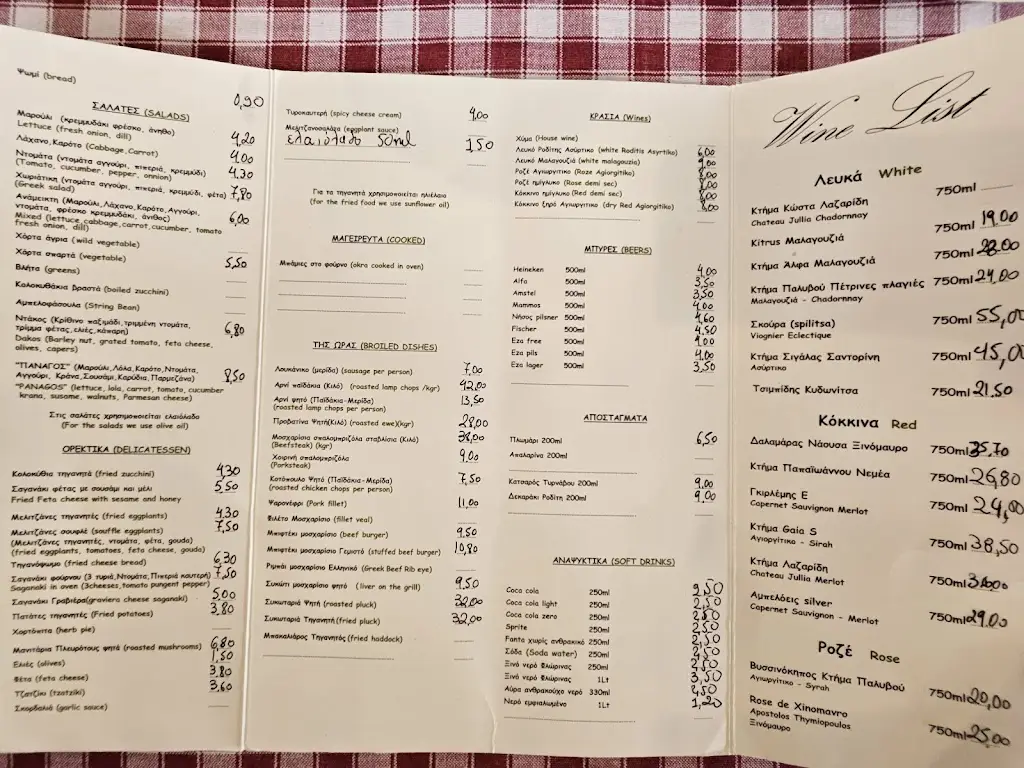 Ψωμί (bread) 0,90
ΣΑΛΑΤΕΣ (SALADS)
Μαρούλι (κρεμμυδάκι φρέσκο, άνηθο)
Lettuce (fresh onion, dill) 4,20
Λάχανο,Καρότο (Cabbage,Carrot) 4,00
Ντομάτα (ντομάτα αγγούρι, πιπεριά, κρεμμύδι)
(Tomato, cucumber, pepper, onion) 4.30
Χωριάτικη (ντομάτα αγγούρι, πιπεριά, κρεμμύδι, φέτα)
(Greek salad) 7,80
Ανάμεικτη (Μαρούλι,Λάχανο,Καρότο,Αγγούρι,
ντομάτα, φρέσκο κρεμμυδάκι, άνιθος) 6,00
Mixed (lettuce,cabbage,carrot,cucumber, tomato
fresh onion, dill)
Χόρτα άγρια (wild vegetable)
Χόρτα σπαρτά (vegetable) 5,50
Βλήτα (greens)
Κολοκυθάκια βραστά (boiled zucchini)
Αμπελοφάσουλα (String Bean)
Ντάκος (Κρίθινο παξιμάδι,τριμμένη ντομάτα,
τρίμμα φέτας,ελιές,κάπαρη) 6,80
Dakos (Barley nut, grated tomato, feta cheese,
olives, capers)
"ΠΑΝΑΓΟΣ" (Μαρούλι, Λόλα,Καρότο,Ντομάτα,
Αγγούρι, Κράνα,Σουσάμι,Καρύδια,Παρμεζάνα) 8,50
"PANAGOS" (lettuce, lola, carrot, tomato, cucumber
krana, susame, walnuts, Parmesan cheese)
Στις σαλάτες χρησιμοποιείται ελαιόλαδο
(For the salads we use olive oil)
ΟΡΕΚΤΙΚΑ (DELICATESSEN)
Κολοκύθια τηγανητά (fried zucchini) 4.30
Σαγανάκι φέτας με σουσάμι και μέλι 5,50
Fried Feta cheese with sesame and honey
Μελιτζάνες τηγανητές (fried eggplants) 4.30
Μελιτζάνες σουφλέ (souffle eggplants) 7,50
(Μελιτζάνες τηγανητές, ντομάτα, φέτα, gouda)
(fried eggplants, tomatoes, feta cheese, gouda)
Τηγανόψωμο (fried cheese bread) 6,30
Σαγανάκι φούρνου (3 τυριά,Ντομάτα,Πιπεριά καυτερή) 7,50
Saganaki in oven (3cheeses,tomato pungent pepper)
Σαγανάκι Γραβιέρα(graviera cheese saganaki) 5,00
Πατάτες τηγανητές (Fried potatoes) 3,80
Χορτόπιτα (herb pie)
Μανιτάρια Πλευρότους ψητά (roasted mushrooms) 6,80
Ελιές (olives) 1,50
Φέτα (feta cheese) 3,80
Τζατζίκι (tzatziki) 3,60
Σκορδαλιά (garlic sauce)
Τυροκαυτερή (spicy cheese cream) 4,00
Μελιτζανοσαλάτα (eggplant sauce)
ελαιόλαδο 50ml 1,50
Για τα τηγανητά χρησιμοποιείται ηλιέλαιο
(for the fried food we use sunflower oil)
ΜΑΓΕΙΡΕΥΤΑ (COOKED)
Μπάμιες στο φούρνο (okra cooked in oven)
ΤΗΣ ΩΡΑΣ (BROILED DISHES)
Λουκάνικο (μερίδα) (sausage per person) 7,00
Αρνί παϊδάκια (Κιλό) (roasted lamp chops /kgr) 42,00
Αρνί ψητό (Παϊδάκια-Μερίδα) 13,50
(roasted lamp chops per person)
Προβατίνα Ψητή(Κιλό)(roasted ewe)(kgr) 28,00
Μοσχαρίσια σπαλομπριζόλα σταβλίσια (Κιλό) 38,00
(Beefsteak) (kgr)
Χοιρινή σπαλομπριζόλα 9,00
(Porksteak)
Κοτόπουλο Ψητό (Παϊδάκια-Μερίδα) 7,50
(roasted chicken chops per person)
Ψαρονέφρι (Pork fillet) 11,00
Φιλέτο Μοσχαρίσιο (fillet veal)
Μπιφτέκι μοσχαρίσιο (beef burger) 9,50
Μπιφτέκι μοσχαρίσιο Γεμιστό (stuffed beef burger) 10,80
Ριμπάι μοσχαρίσιο Ελληνικό (Greek Beef Rib eye)
Συκώτι μοσχαρίσιο ψητό (liver on the grill) 9,50
Συκωταριά Ψητή (roasted pluck) 32,00
Συκωταριά Τηγανητή(fried pluck) 32,00
Μπακαλιάρος Τηγανητός(fried haddock)
ΚΡΑΣΙΑ (Wines)
Χύμα (House wine)
Λευκό Ροδίτης Ασύρτικο (white Roditis Asyrtiko) 6,00
Λευκό Μαλαγουζιά (white malagouzia) 9,00
Ροζέ Αγιωργίτικο (Roze Agiorgitiko) 8,00
Ροζέ ημίγλυκο (Rose demi sec) 8,00
Κόκκινο ημίγλυκο (Red demi sec) 8,00
Κόκκινο ξηρό Αγιωργίτικο (dry Red Agiorgitiko) 8,00
ΜΠΥΡΕΣ (BEERS)
Heineken 500ml 4,00
Alfa 500ml 3,50
Amstel 500ml 3,50
Mammos 500ml 4,00
Νήσος pilsner 500ml 4,60
Fischer 500ml 4.50
Eza free 500ml 4,00
Eza pils 500ml 4,00
Eza lager 500ml 3,50
ΑΠΟΣΤΑΓΜΑΤΑ
Πλωμάρι 200ml 6,50
Απαλαρίνα 200ml
Κατσαρός Τυρνάβου 200ml 9,00
Δεκαράκι Ροδίτη 200ml 9,00
ΑΝΑΨΥΚΤΙΚΑ (SOFT DRINKS)
Coca cola 250ml 2,50
Coca cola light 250ml 2,50
Coca cola zero 250ml 2,50
Sprite 250ml 2,50
Fanta χωρίς ανθρακικό 250ml 2,50
Σόδα (Soda water) 250ml
Ξινό νερό Φλώρινας 250ml 2,50
Ξινό νερό Φλώρινας 1Lt 3,50
Αύρα ανθρακούχο νερό 330ml 2,50
Νερό εμφιαλωμένο 1Lt 1,20
Wine List
Λευκά White
Κτήμα Κώστα Λαζαρίδη 750ml
Chateau Jullia Chadornnay
Kitrus Μαλαγουζιά 750ml 19,00
Κτήμα Άλφα Μαλαγουζιά 750ml
Κτήμα Παλυβού Πέτρινες πλαγιές 750ml 24,00
Μαλαγουζιά - Chadornnay
Σκούρα (spilitsa) 750ml 55,00
Viognier Eclectique
Κτήμα Σιγάλας Σαντορίνη 750ml 45,00
Ασύρτικο
Τσιμπίδης Κυδωνίτσα 750ml 21,50
Κόκκινα Red
Δαλαμάρας Νάουσα Ξινόμαυρο 750ml
Κτήμα Παπαϊωάννου Νεμέα 750ml 26,80
Γκιρλέμης Ε 750ml 24,00
Capernet Sauvignon Merlot
Κτήμα Gaia S 750ml 38,50
Αγιορίτικο - Sirah
Κτήμα Λαζαρίδη 750ml
Chateau Jullia Merlot
Αμπελόεις silver 750ml 29,00
Capernet Sauvignon - Merlot
Ροζέ Rose
Βυσσινόκηπος Κτήμα Παλυβού 750ml 20,00
Αγιωργίτικο - Syrah
Rose de Xinomavro 750ml 25,00
Apostolos Thymiopoulos
Ξινόμαυρο